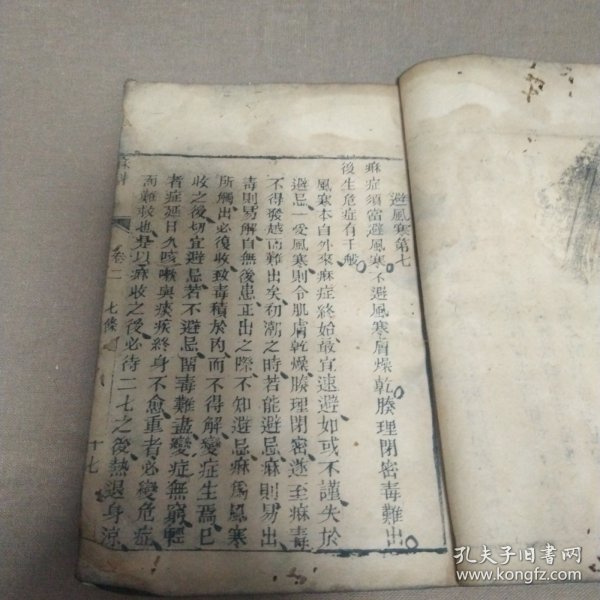 避風寒第七
痳症須當避風寒不避風寒膚燥乾腠理閉密毒難出
後生危症有千般
風寒本自外來痳症終始最宜速避如或不謹失於
避忌一受風寒則令肌膚乾燥腠理閉密遂至痳毒
不得發越而難出矣初潮之時若能避忌痳則易出
毒則易解自無後患正出之際不知避忌痳爲風寒
所觸出必復收致毒積於內而不得解變症生焉已
收之後切宜避忌若不避忌畱毒難盡變症無窮輕
者症延日久咳嗽與痰疾終身不愈重者必變危症
而難救也是以痳收之後必待二七之後熱退身涼
痳科
卷二
七條
十七
孔夫子旧书网
www.kongfz.com